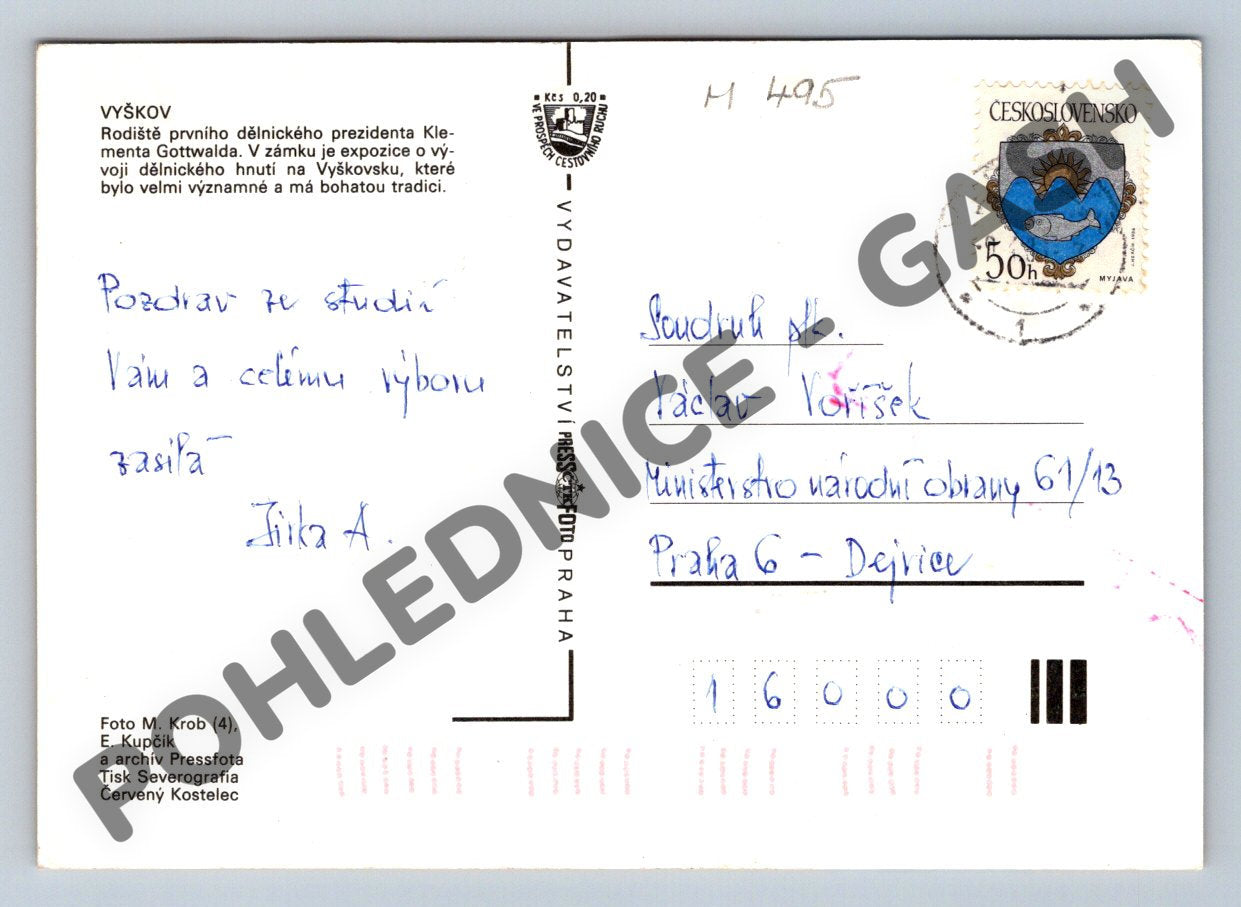 VYŠKOV
Rodiště prvního dělnického prezidenta Kle-
menta Gottwalda. V zámku je expozice o vý-
voji dělnického hnutí na Vyškovsku, které
bylo velmi významné a má bohatou tradici.
Pozdrav ze studií
Vám a celému výboru
zasílá
Jirka A.
Foto M. Krob (4),
E. Kupčík
a archív Pressfota
Tisk Severografia
Červený Kostelec
Kčs 0,20
VE PROSPĚCH CESTOVNÍHO RUCHU
VYDAVATELSTVÍ PRESSFOTO PRAHA
ČTK
M 495
ČESKOSLOVENSKO
50h
MYJAVA
1
Soudruh plk.
Václav Voříšek
Ministerstvo národní obrany 61/13
Praha 6 - Dejvice
16000
POHLEDNICE - GASH